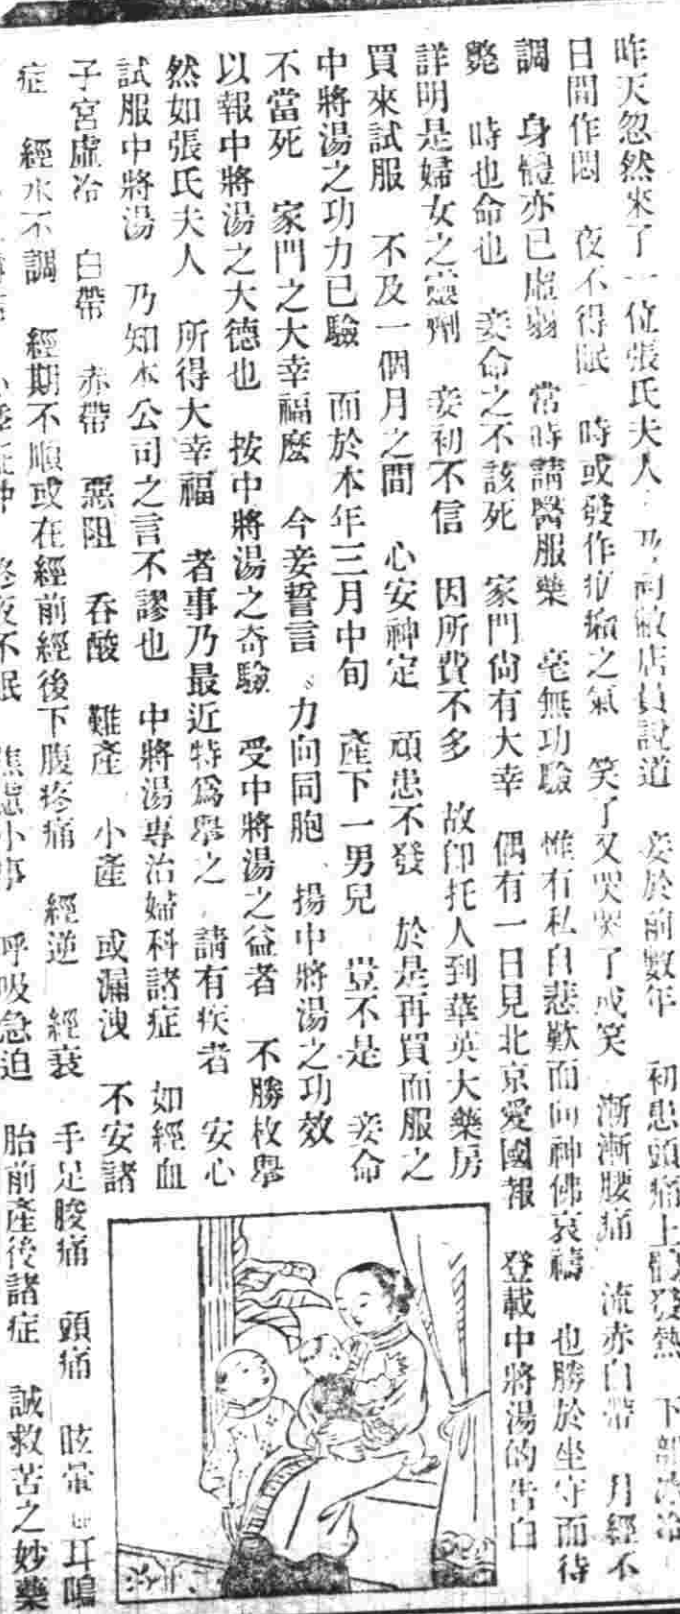 昨天忽然來了一位張氏夫人 乃向敝店員說道 妾於前數年 初患頭痛上體發熱 下部冰冷
日間作悶 夜不得眠 時或發作之氣 笑了又哭哭了或笑 漸漸腰痛 流赤白帶 月經不
調 身體亦已虛弱 常時請醫服藥 毫無功驗 惟有私自悲歎而向神佛哀禱 也勝於坐守而待
斃 時也命也 妾命之不該死 家門尙有大幸 偶有一日見北京愛國報 登載中將湯的告白
詳明是婦女之靈劑 妾初不信 因所費不多 故卽托人到華英大藥房
買來試服 不及一個月之間 心安神定 頑患不發 於是再買而服之
中將湯之功力已驗 而於本年三月中旬 產下一男兒 豈不是 妾命
不當死 家門之大幸福麽 今妾誓言 力向同胞 揚中將湯之功效
以報中將湯之大德也 按中將湯之奇驗 受中將湯之益者 不勝枚舉
然如張氏夫人 所得大幸福 者事乃最近特爲舉之 請有疾者 安心
試服中將湯 乃知本公司之言不謬也 中將湯專治婦科諸症 如經血
子宮虛冷 白帶 赤帶 惡阻 吞酸 難產 小產 或漏洩 不安諸
症 經水不調 經期不順或在經前經後下腹疼痛 經逆 經衰 手足酸痛 頭痛 眩暈 耳鳴
終夜不眠 焦慮小事 呼吸急迫 胎前產後諸症 誠救苦之妙藥